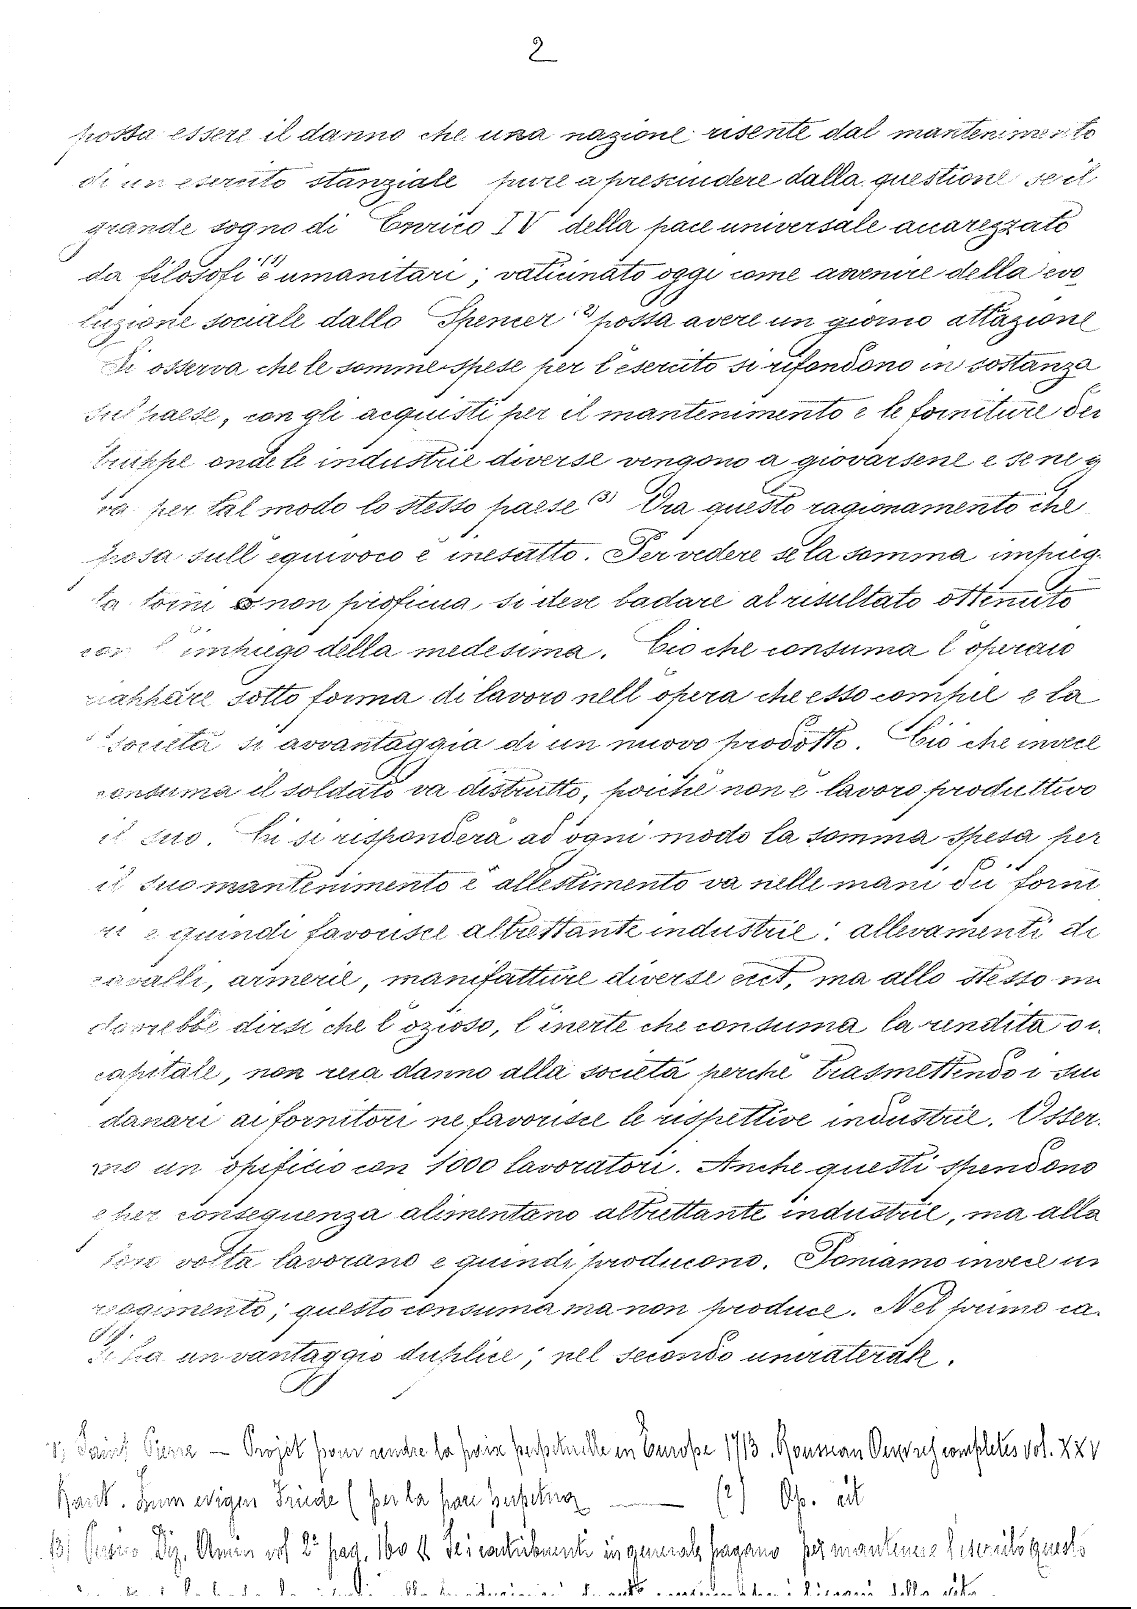 2
possa essere il danno che una nazione risente dal mantenimento
di un esercito stanziale pure a prescindere dalla questione se il
grande sogno di Enrico IV della pace universale accarezzato
da filosofi (1) e umanitari; vaticinato oggi come avvenire della evo
luzione sociale dallo Spencer 2) possa avere un giorno attazione
Si osserva che le somme spese per l'esercito si rifondono in sostanza
sul paese, con gli acquisti per il mantenimento e le forniture dei
truppe onde le industrie diverse vengono a giovarsene e se ne g
va per tal modo lo stesso paese (3) Ora questo ragionamento che
posa sull'equivoco è inesatto. Per vedere se la somma impieg
ta torni o non proficua, si deve badare al risultato ottenuto
con l'impiego della medesima. Ciò che consuma l'operaio
riappare sotto forma di lavoro nell'opera che esso compie e la
società si avvantaggia di un nuovo prodotto. Ciò che invece
consuma il soldato va distrutto, poiché non è lavoro produttivo
il suo. Ci si risponderà ad ogni modo la somma spesa per
il suo mantenimento e allestimento va nelle mani dei forni
ri e quindi favorisce altrettante industrie: allevamenti di
cavalli, armerie, manifatture diverse ect, ma allo stesso m
dovrebbe dirsi che l'ozioso, l'inerte che consuma la rendita o i
capitale, non reca danno alla società perché trasmettendo i suo
danari ai fornitori ne favorisce le rispettive industrie. Osser.
mo un opificio con 1000 lavoratori. Anche questi spendono
e per conseguenza alimentano altrettante industrie, ma alla
loro volta lavorano e quindi producono. Poniamo invece un
reggimento; questo consuma ma non produce. Nel primo ca.
si ha un vantaggio duplice; nel secondo unilaterale.
1) Saint Pierre — Projet pour rendre la paix perpetuelle in Europe 1713. Rousseau Oeuvres completes vol. XXV
Kant. Zum ewigen Friede (per la pace perpetua — (2) Op. cit
(3) Diz. Amm vol 2° pag. 160 Se i contribuenti in generale pagano per mantenere l'esercito questo